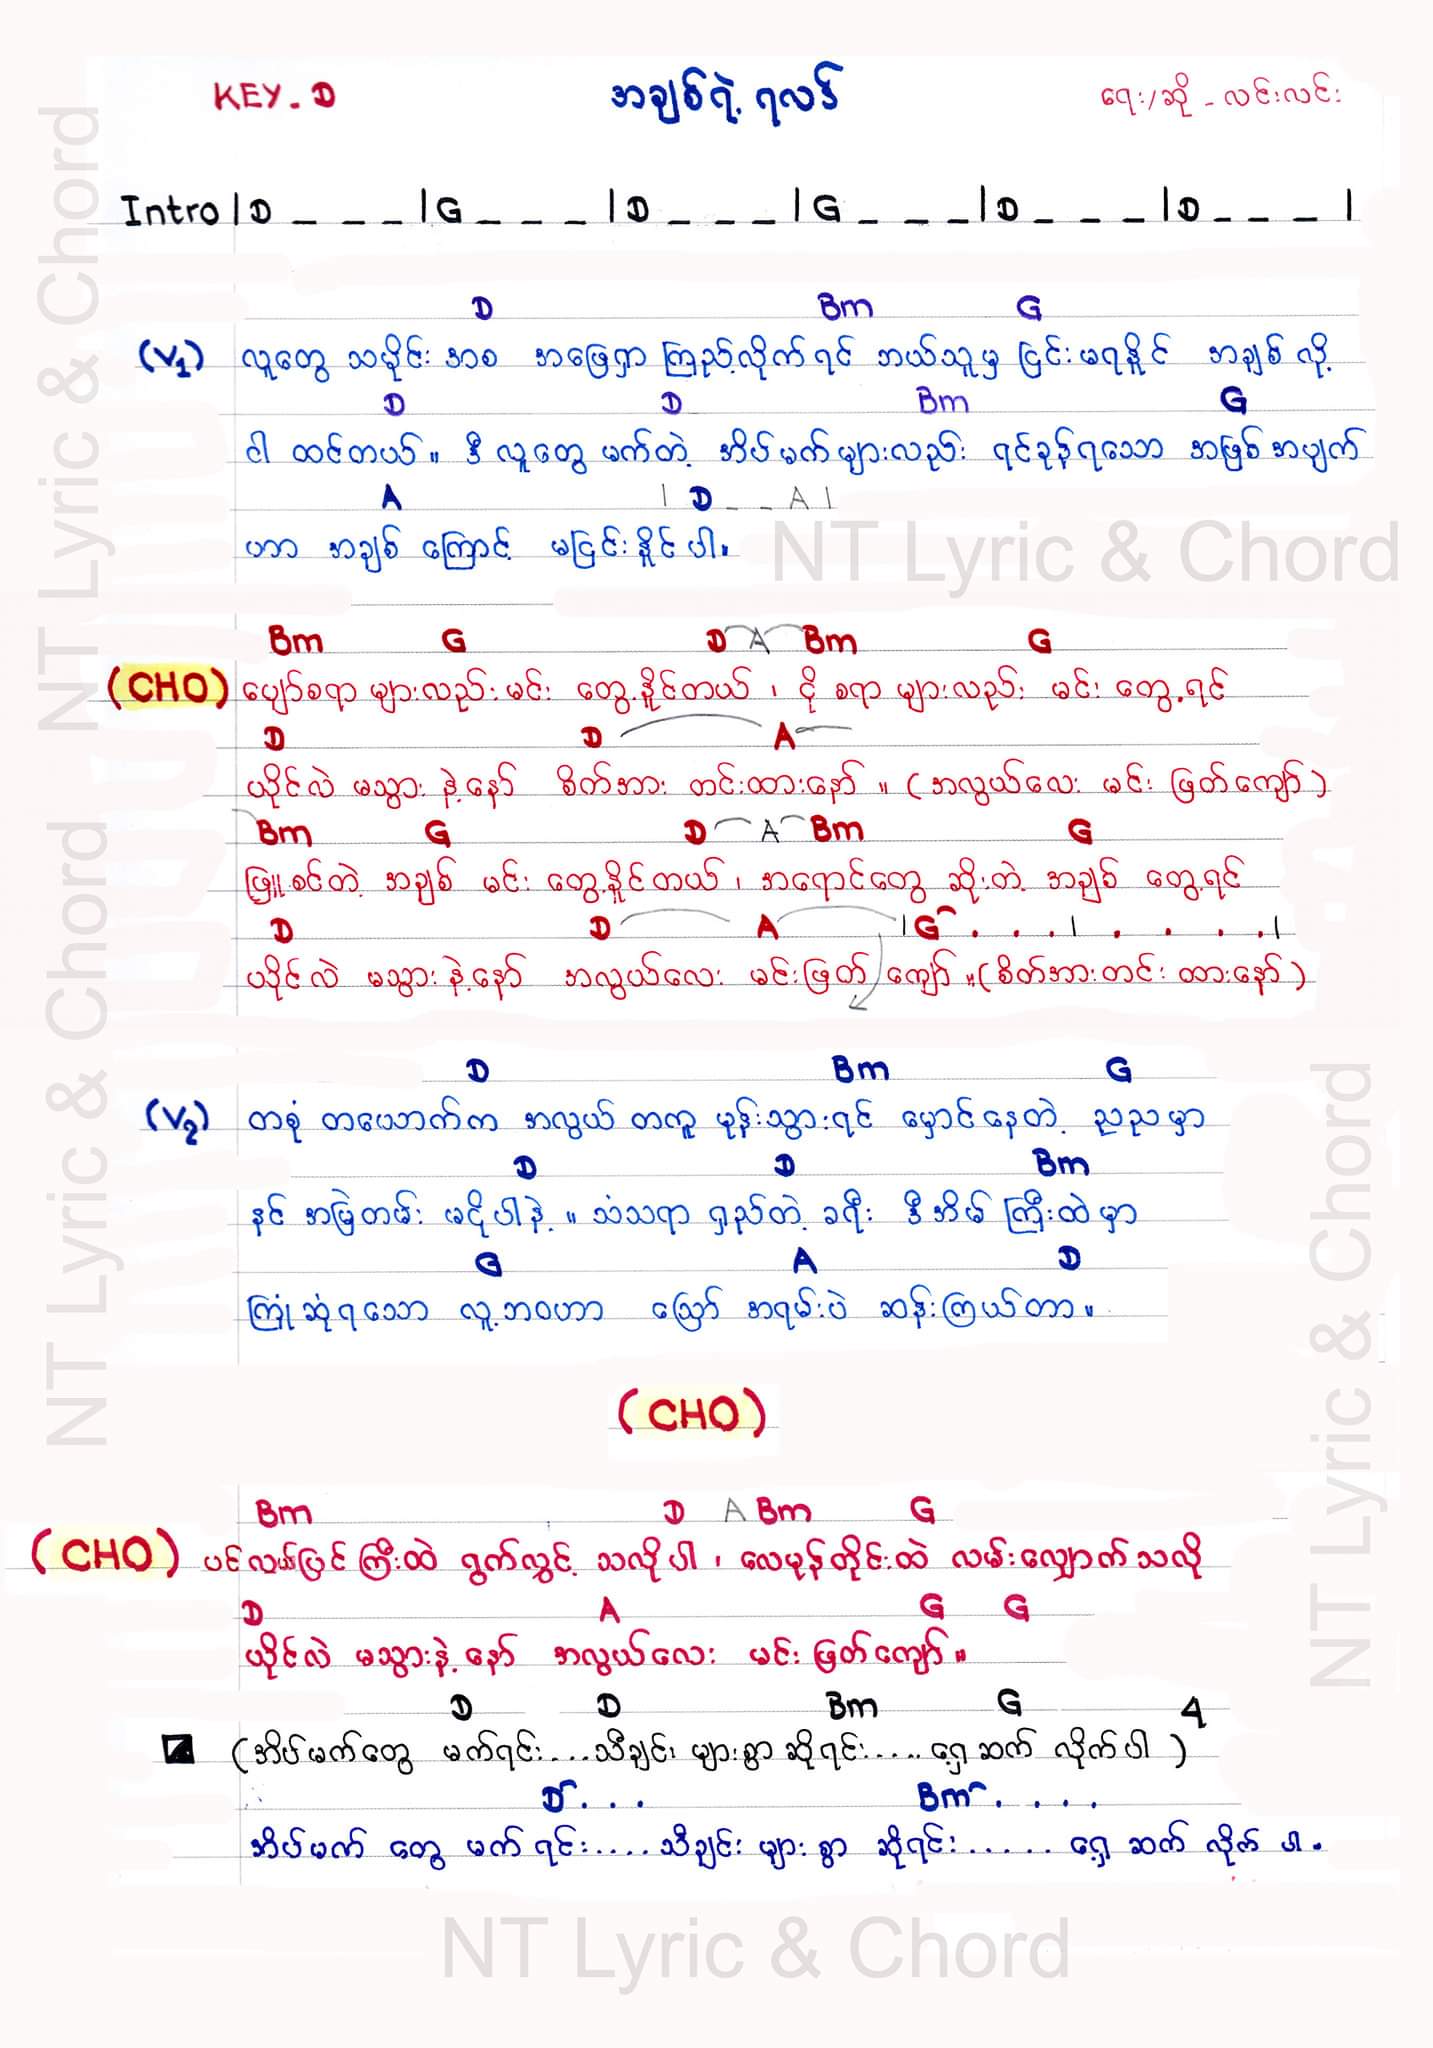 KEY - D
အချစ်ရဲ့ ရလဒ်
ရေး/ဆို - လင်းလင်း
Intro | D _ _ _ | G _ _ _ | D _ _ _ | G _ _ _ | D _ _ _ | D _ _ _ |
D Bm G
(V1) လူတွေ သမိုင်း အစ အဖြေရှာ ကြည့်လိုက်ရင် ဘယ်သူမှ ငြင်းမရနိုင် အချစ် လို့
D D Bm G
ငါ ထင်တယ်။ ဒီ လူတွေ မက်တဲ့ အိပ်မက်များလည်း ရင်ခုန်ရသော အဖြစ်အပျက်
A | D _ _ A |
ဟာ အချစ် ကြောင့် မငြင်းနိုင်ပါ။
NT Lyric & Chord
Bm G D A Bm G
(CHO) ပျော်စရာ များလည်း မင်း တွေ့နိုင်တယ် ၊ ငို စရာ များလည်း မင်း တွေ့ရင်
D D A
ယိုင်လဲ မသွား နဲ့နော် စိတ်အား တင်းထားနော် ။ (အလွယ်လေး မင်း ဖြတ်ကျော်)
Bm G D A Bm G
ဖြူစင်တဲ့ အချစ် မင်း တွေ့နိုင်တယ် ၊ အရောင်တွေ ဆိုးတဲ့ အချစ် တွေ့ရင်
D D A | G . . . | . . . . |
ယိုင်လဲ မသွားနဲ့နော် အလွယ်လေး မင်းဖြတ် ကျော် ။ (စိတ်အားတင်း ထားနော်)
D Bm G
(V2) တစုံ တယောက်က အလွယ် တကူ မုန်းသွားရင် မှောင်နေတဲ့ ညညမှာ
D D Bm
နင် အမြဲတမ်း မငိုပါနဲ့ ။ သံသရာ ရှည်တဲ့ ခရီး ဒီအိမ် ကြီးထဲမှာ
G A D
ကြုံဆုံရသော လူ့ဘဝဟာ သြော် အရမ်းပဲ ဆန်းကြယ်တာ ။
(CHO)
Bm D A Bm G
(CHO) ပင်လယ်ပြင်ကြီးထဲ ရွက်လွှင့် သလိုပါ ၊ လေမုန်တိုင်းထဲ လမ်းလျှောက်သလို
D A G G
ယိုင်လဲ မသွားနဲ့ နော် အလွယ်လေး မင်း ဖြတ်ကျော် ။
D D Bm G 4
(အိပ်မက်တွေ မက်ရင်း...သီချင်း များစွာ ဆိုရင်း.... ရှေ့ဆက် လိုက်ပါ )
D . . . Bm . . . .
အိပ်မက် တွေ မက် ရင်း....သီချင်း များ စွာ ဆိုရင်း..... ရှေ့ ဆက် လိုက် ပါ ။
NT Lyric & Chord
NT Lyric & Chord
NT Lyric & Chord
NT Lyric & Chord